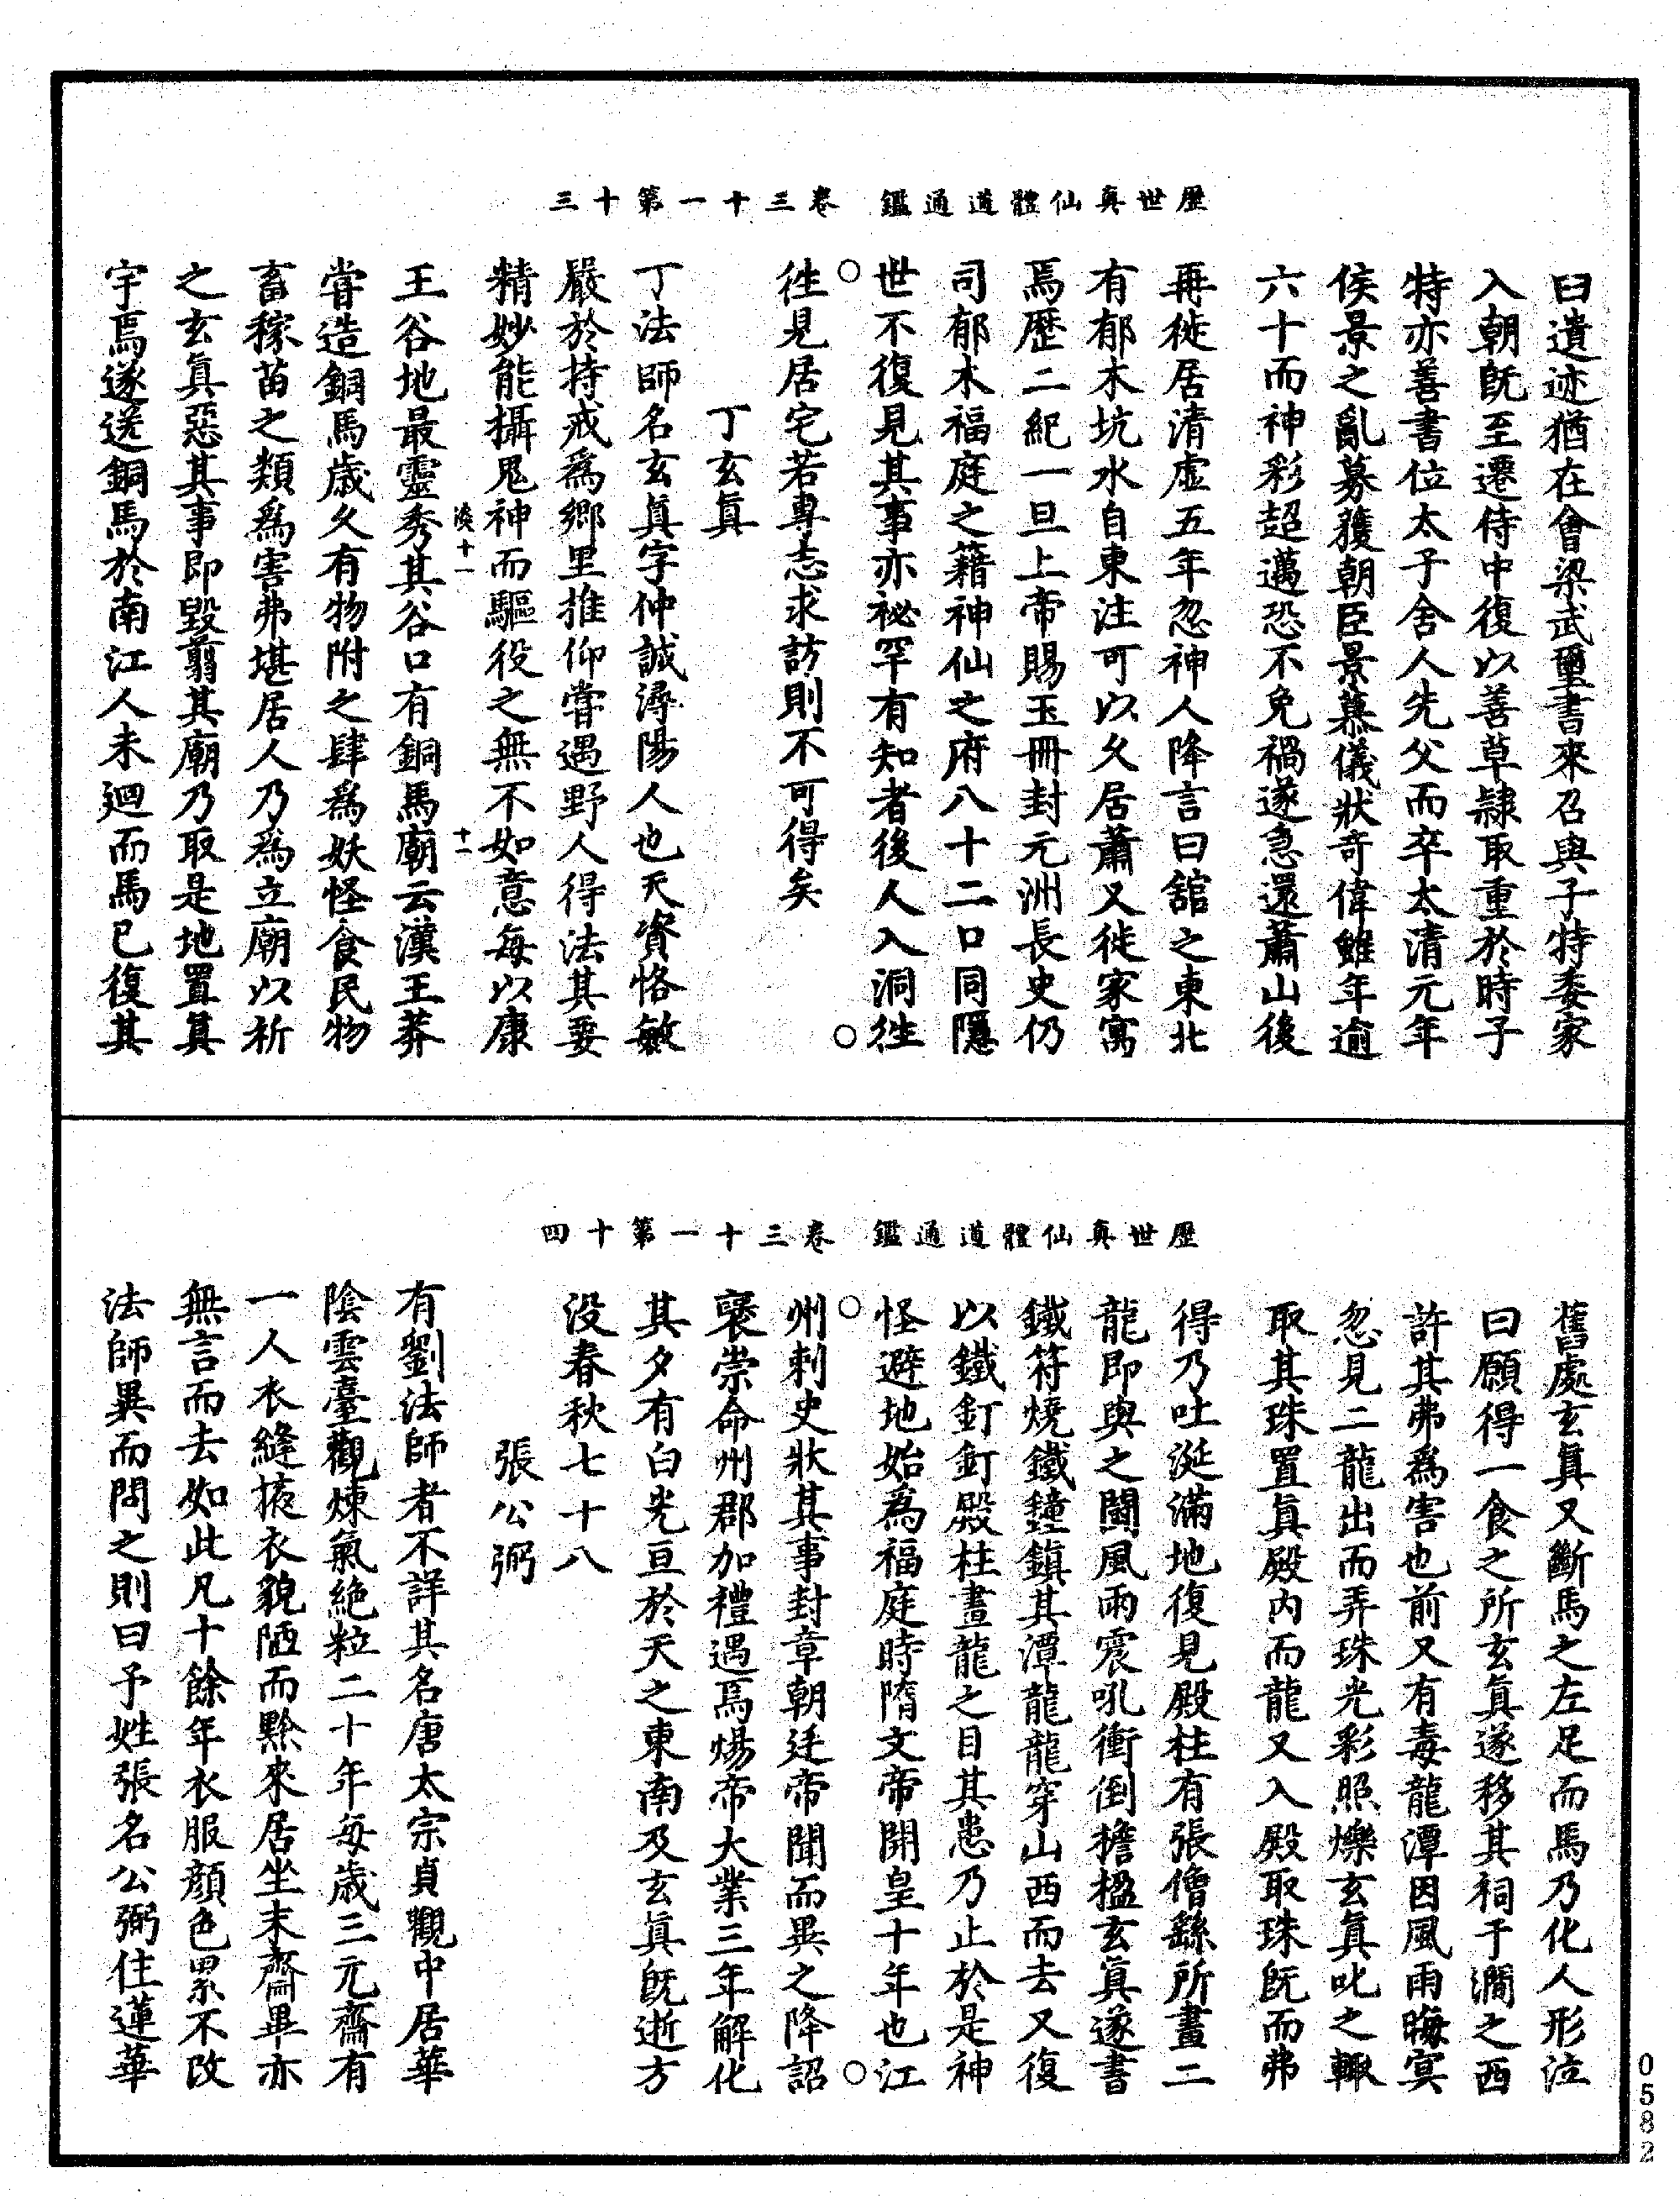 歷世真仙體道通鑑　卷三十一第十三
曰遺迹猶在會梁武璽書來召與子特委家
入朝旣至遷侍中復以善草隷取重於時子
特亦善書位太子舍人先父而卒太清元年
侯景之亂募獲朝臣景慕儀狀奇偉雖年逾
六十而神彩超邁恐不免禍遂急還蕭山後
再徙居清虛五年忽神人降言曰舘之東北
有郁木坑水自東注可以久居蕭又徙家寓
焉歷二紀一旦上帝賜玉冊封元洲長史仍
司郁木福庭之籍神仙之府八十二口同隱
世不復見其事亦祕罕有知者後人入洞徃○
○徃見居宅若專志求訪則不可得矣
丁玄真
丁法師名玄真字仲誠潯陽人也天資恪敏
嚴於持戒爲鄉里推仰嘗遇野人得法其要
精妙能攝鬼神而驅役之無不如意每以康
淡十一　十二
王谷地最靈秀其谷口有銅馬廟云漢王莽
嘗造銅馬歲久有物附之肆爲妖怪食民物
畜稼苗之類爲害弗堪居人乃爲立廟以祈
之玄真惡其事即毀翦其廟乃取是地置真
宇焉遂送銅馬於南江人未迴而馬已復其
歷世真仙體道通鑑　卷三十一第十四
舊處玄真又斷馬之左足而馬乃化人形泣
曰願得一食之所玄真遂移其祠于澗之西
許其弗爲害也前又有毒龍潭因風雨晦冥
忽見二龍出而弄珠光彩照爍玄真叱之輙
取其珠置真殿內而龍又入殿取珠旣而弗
得乃吐涎滿地復見殿柱有張僧繇所畫二
龍即與之鬭風雨震吼衝倒擔楹玄真遂書
鐵符燒鐵鐘鎮其潭龍龍穿山西而去又復
以鐵釘釘殿柱畫龍之目其患乃止於是神
怪避地始爲福庭時隋文帝開皇十年也江○
○州刺史狀其事封章朝廷帝聞而異之降詔
褒崇命州郡加禮遇焉煬帝大業三年解化
其夕有白光亘於天之東南及玄真旣逝方
沒春秋七十八
張公弼
有劉法師者不詳其名唐太宗貞觀中居華
陰雲臺觀煉氣絕粒二十年每歲三元齋有
一人衣縫掖衣貌陋而黔來居坐末齋畢亦
無言而去如此凡十餘年衣服顏色累不改
法師異而問之則曰予姓張名公弼住蓮華
0582